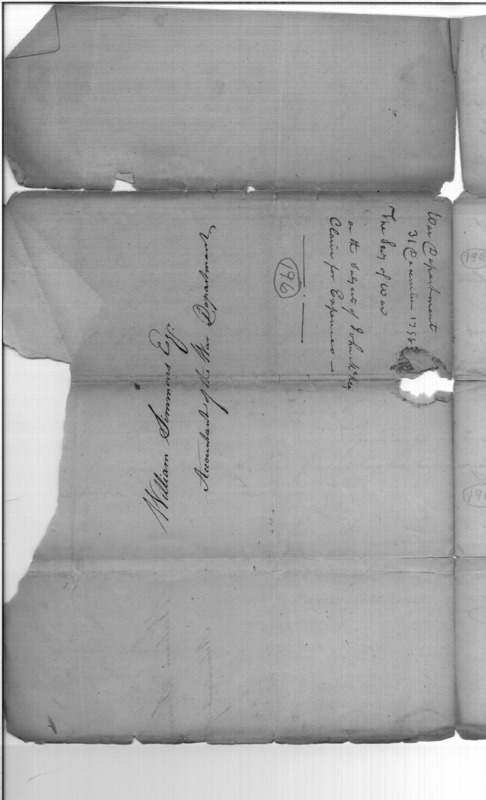 War Department
31 December 1798
The Secy of War
on the Subject of John McKee
Claim for Expences
196
William Simmons Esqr.
Accountant of the War Department
196